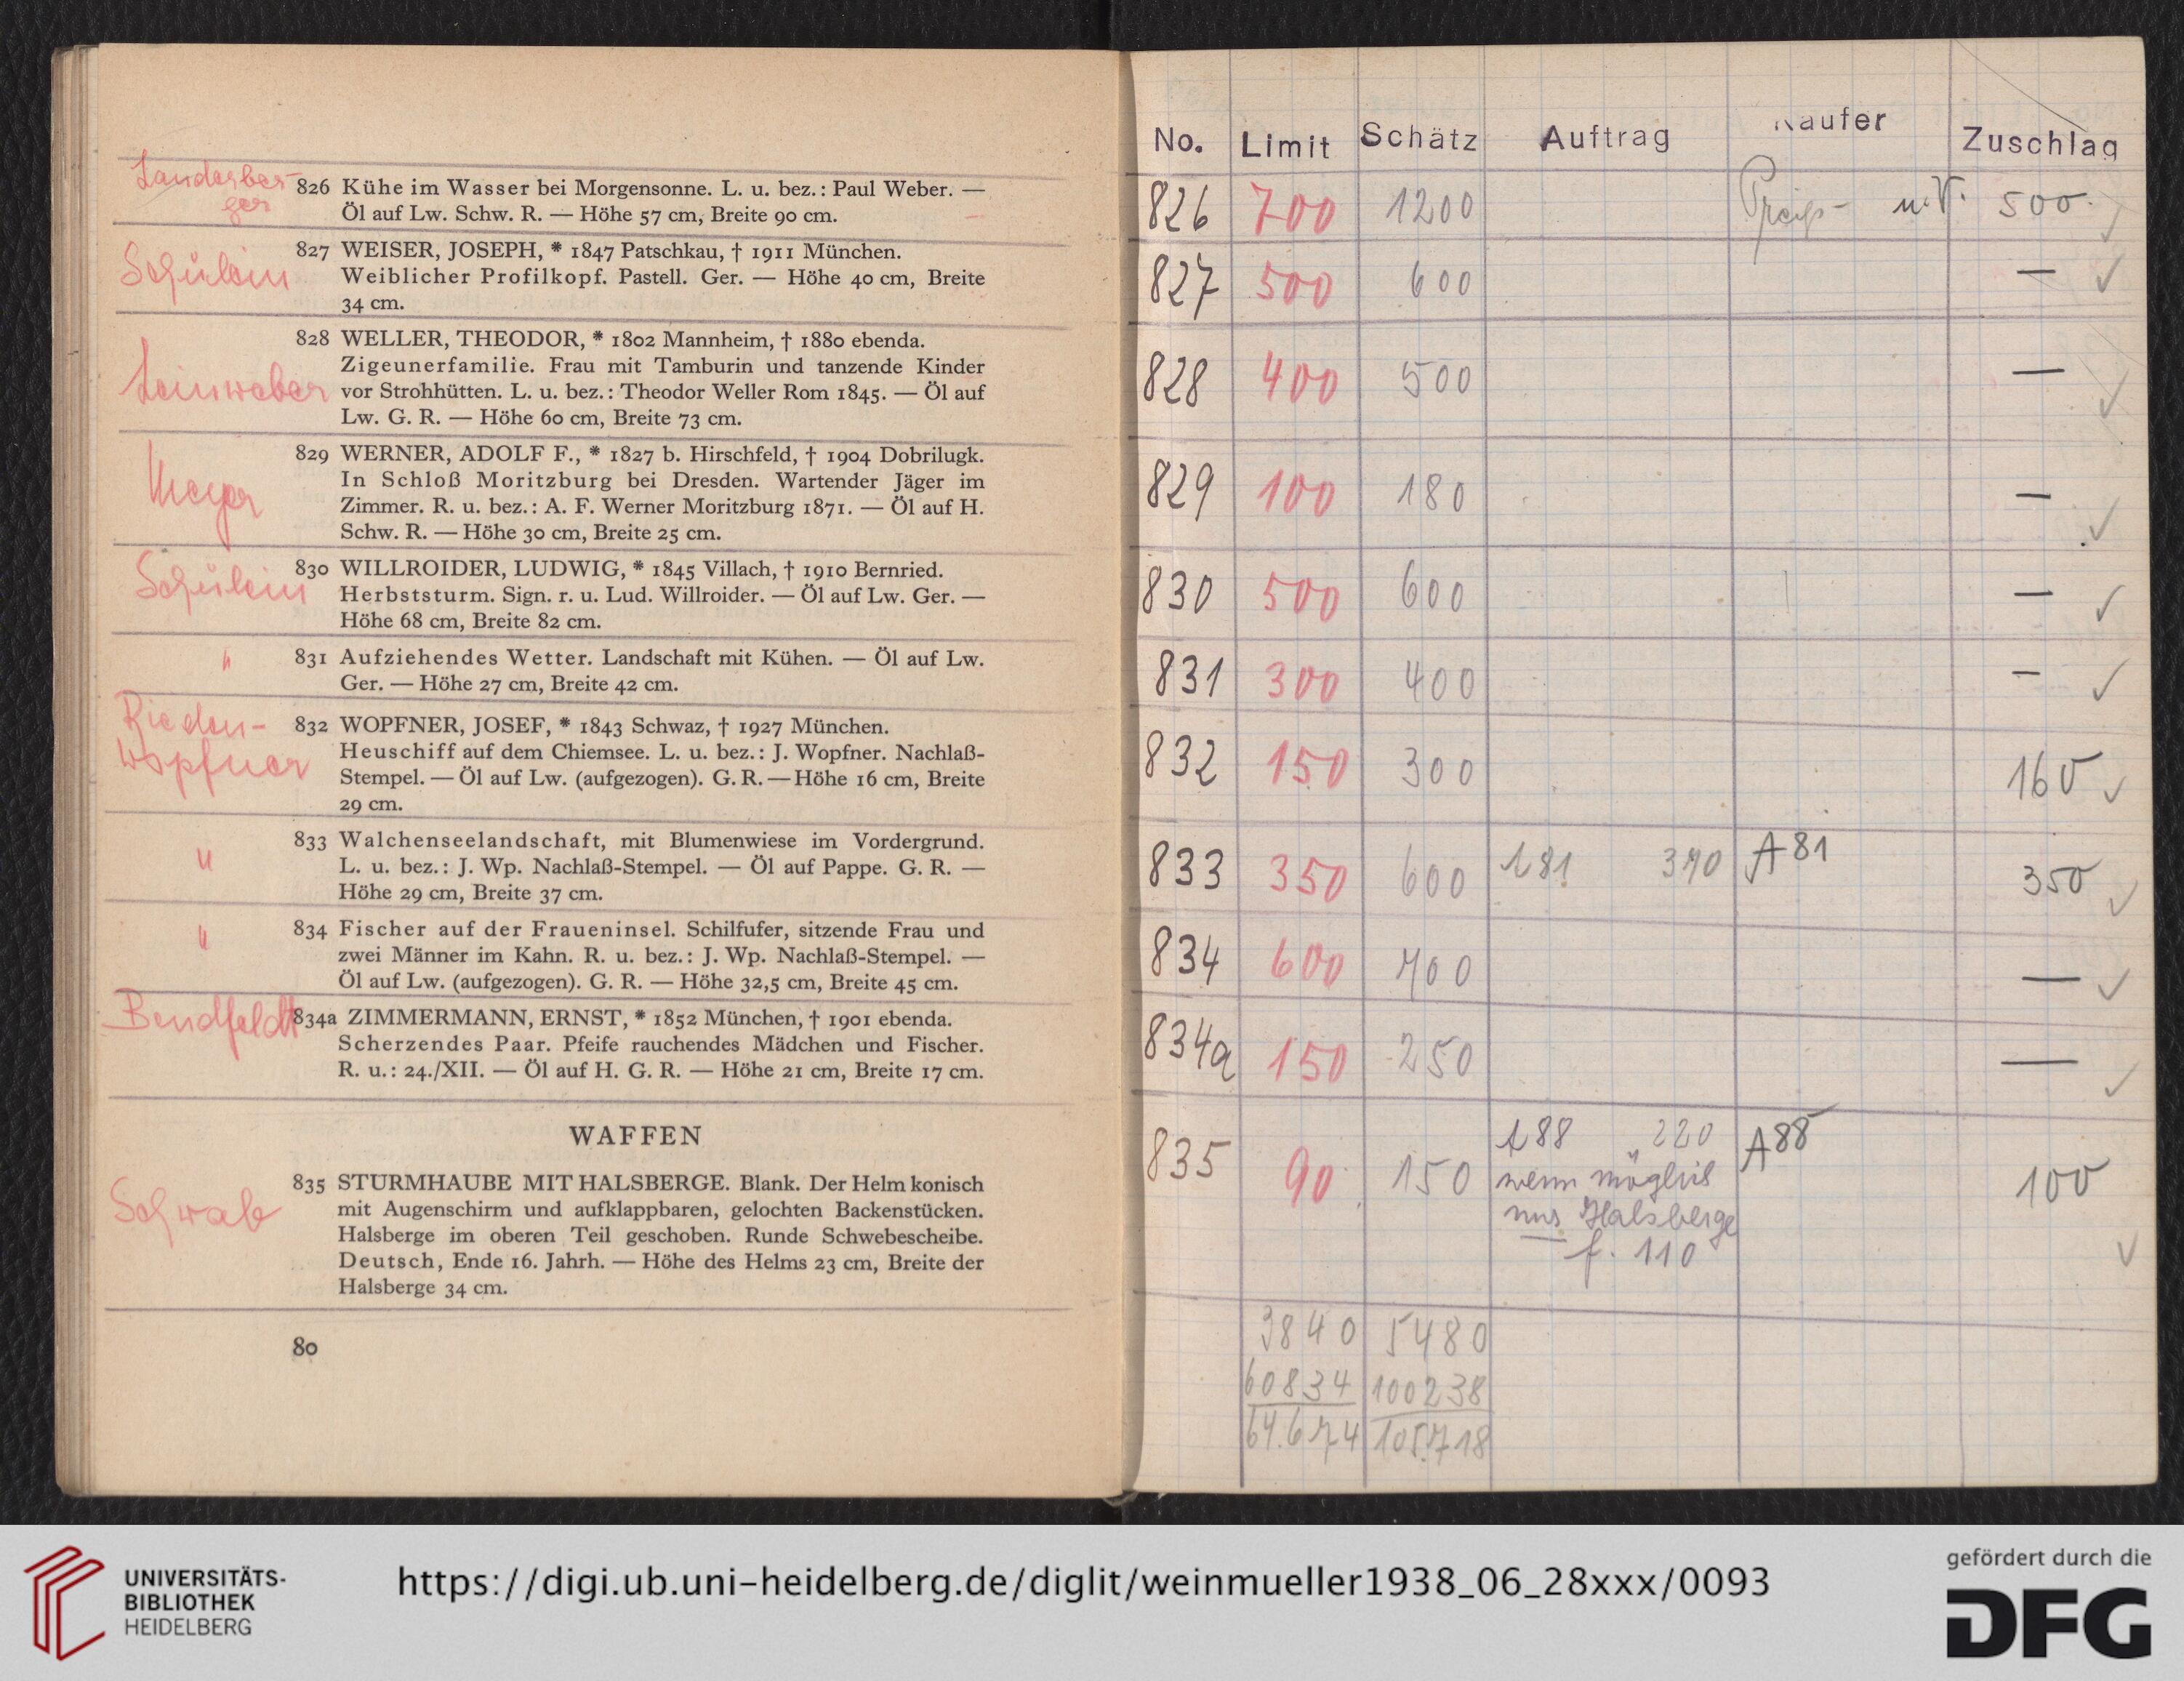 Landesber-
ger
826 Kühe im Wasser bei Morgensonne. L. u. bez.: Paul Weber. —
Öl auf Lw. Schw. R. — Höhe 57 cm, Breite 90 cm.
Schülein
827 WEISER, JOSEPH, * 1847 Patschkau, † 1911 München.
Weiblicher Profilkopf. Pastell. Ger. — Höhe 40 cm, Breite
34 cm.
Leinweber
828 WELLER, THEODOR, * 1802 Mannheim, † 1880 ebenda.
Zigeunerfamilie. Frau mit Tamburin und tanzende Kinder
vor Strohhütten. L. u. bez.: Theodor Weller Rom 1845. — Öl auf
Lw. G. R. — Höhe 60 cm, Breite 73 cm.
Meyer
829 WERNER, ADOLF F., * 1827 b. Hirschfeld, † 1904 Dobrilugk.
In Schloß Moritzburg bei Dresden. Wartender Jäger im
Zimmer. R. u. bez.: A. F. Werner Moritzburg 1871. — Öl auf H.
Schw. R. — Höhe 30 cm, Breite 25 cm.
Schülein
830 WILLROIDER, LUDWIG, * 1845 Villach, † 1910 Bernried.
Herbststurm. Sign. r. u. Lud. Willroider. — Öl auf Lw. Ger. —
Höhe 68 cm, Breite 82 cm.
"
831 Aufziehendes Wetter. Landschaft mit Kühen. — Öl auf Lw.
Ger. — Höhe 27 cm, Breite 42 cm.
Rieden-
Wopfner
832 WOPFNER, JOSEF, * 1843 Schwaz, † 1927 München.
Heuschiff auf dem Chiemsee. L. u. bez.: J. Wopfner. Nachlaß-
Stempel. — Öl auf Lw. (aufgezogen). G. R. — Höhe 16 cm, Breite
29 cm.
"
833 Walchenseelandschaft, mit Blumenwiese im Vordergrund.
L. u. bez.: J. Wp. Nachlaß-Stempel. — Öl auf Pappe. G. R. —
Höhe 29 cm, Breite 37 cm.
"
834 Fischer auf der Fraueninsel. Schilfufer, sitzende Frau und
zwei Männer im Kahn. R. u. bez.: J. Wp. Nachlaß-Stempel. —
Öl auf Lw. (aufgezogen). G. R. — Höhe 32,5 cm, Breite 45 cm.
Bendfeldt
834a ZIMMERMANN, ERNST, * 1852 München, † 1901 ebenda.
Scherzendes Paar. Pfeife rauchendes Mädchen und Fischer.
R. u.: 24./XII. — Öl auf H. G. R. — Höhe 21 cm, Breite 17 cm.
WAFFEN
Schwab
835 STURMHAUBE MIT HALSBERGE. Blank. Der Helm konisch
mit Augenschirm und aufklappbaren, gelochten Backenstücken.
Halsberge im oberen Teil geschoben. Runde Schwebescheibe.
Deutsch, Ende 16. Jahrh. — Höhe des Helms 23 cm, Breite der
Halsberge 34 cm.
80
No. Limit Schätz Auftrag Käufer Zuschlag
826 700 1200 n.V. 500.
827 500 600 —
828 400 500 —
829 100 180 —
830 500 600 —
831 300 400 —
832 150 300 160
833 350 600 A81 370 A81 350
834 600 700 —
834a 150 250 —
835 90 150 A88 220 A88 100
wenn möglich
nur Halsberge
f. 110
3840 5480
60834 100238
64.674 105.718
UNIVERSITÄTS-
BIBLIOTHEK
HEIDELBERG
https://digi.ub.uni-heidelberg.de/diglit/weinmueller1938_06_28xxx/0093
gefördert durch die
DFG